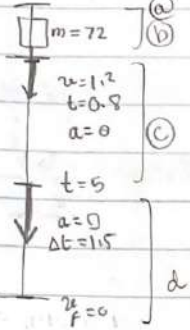 a
m=72
b
v=1.2
t=0.8
a=0
c
t=5
a=0
Δt=1.5
d
v_f=0